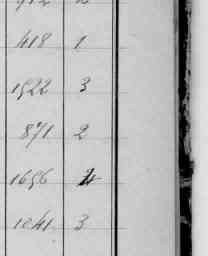 418 1
1522 3
871 2
1696 4
1241 3